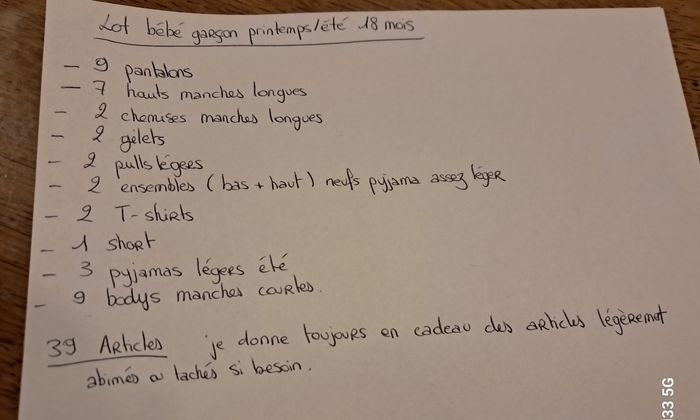 Lot bébé garçon printemps/été 18 mois
- 9 pantalons
- 7 hauts manches longues
- 2 chemises manches longues
- 2 gilets
- 2 pulls légers
- 2 ensembles (bas + haut) neufs pyjama assez léger
- 2 T-shirts
- 1 short
- 3 pyjamas légers été
- 9 bodys manches courtes.
39 Articles je donne toujours en cadeau des articles légèremnt
abimés ou tachés si besoin.
33 5G